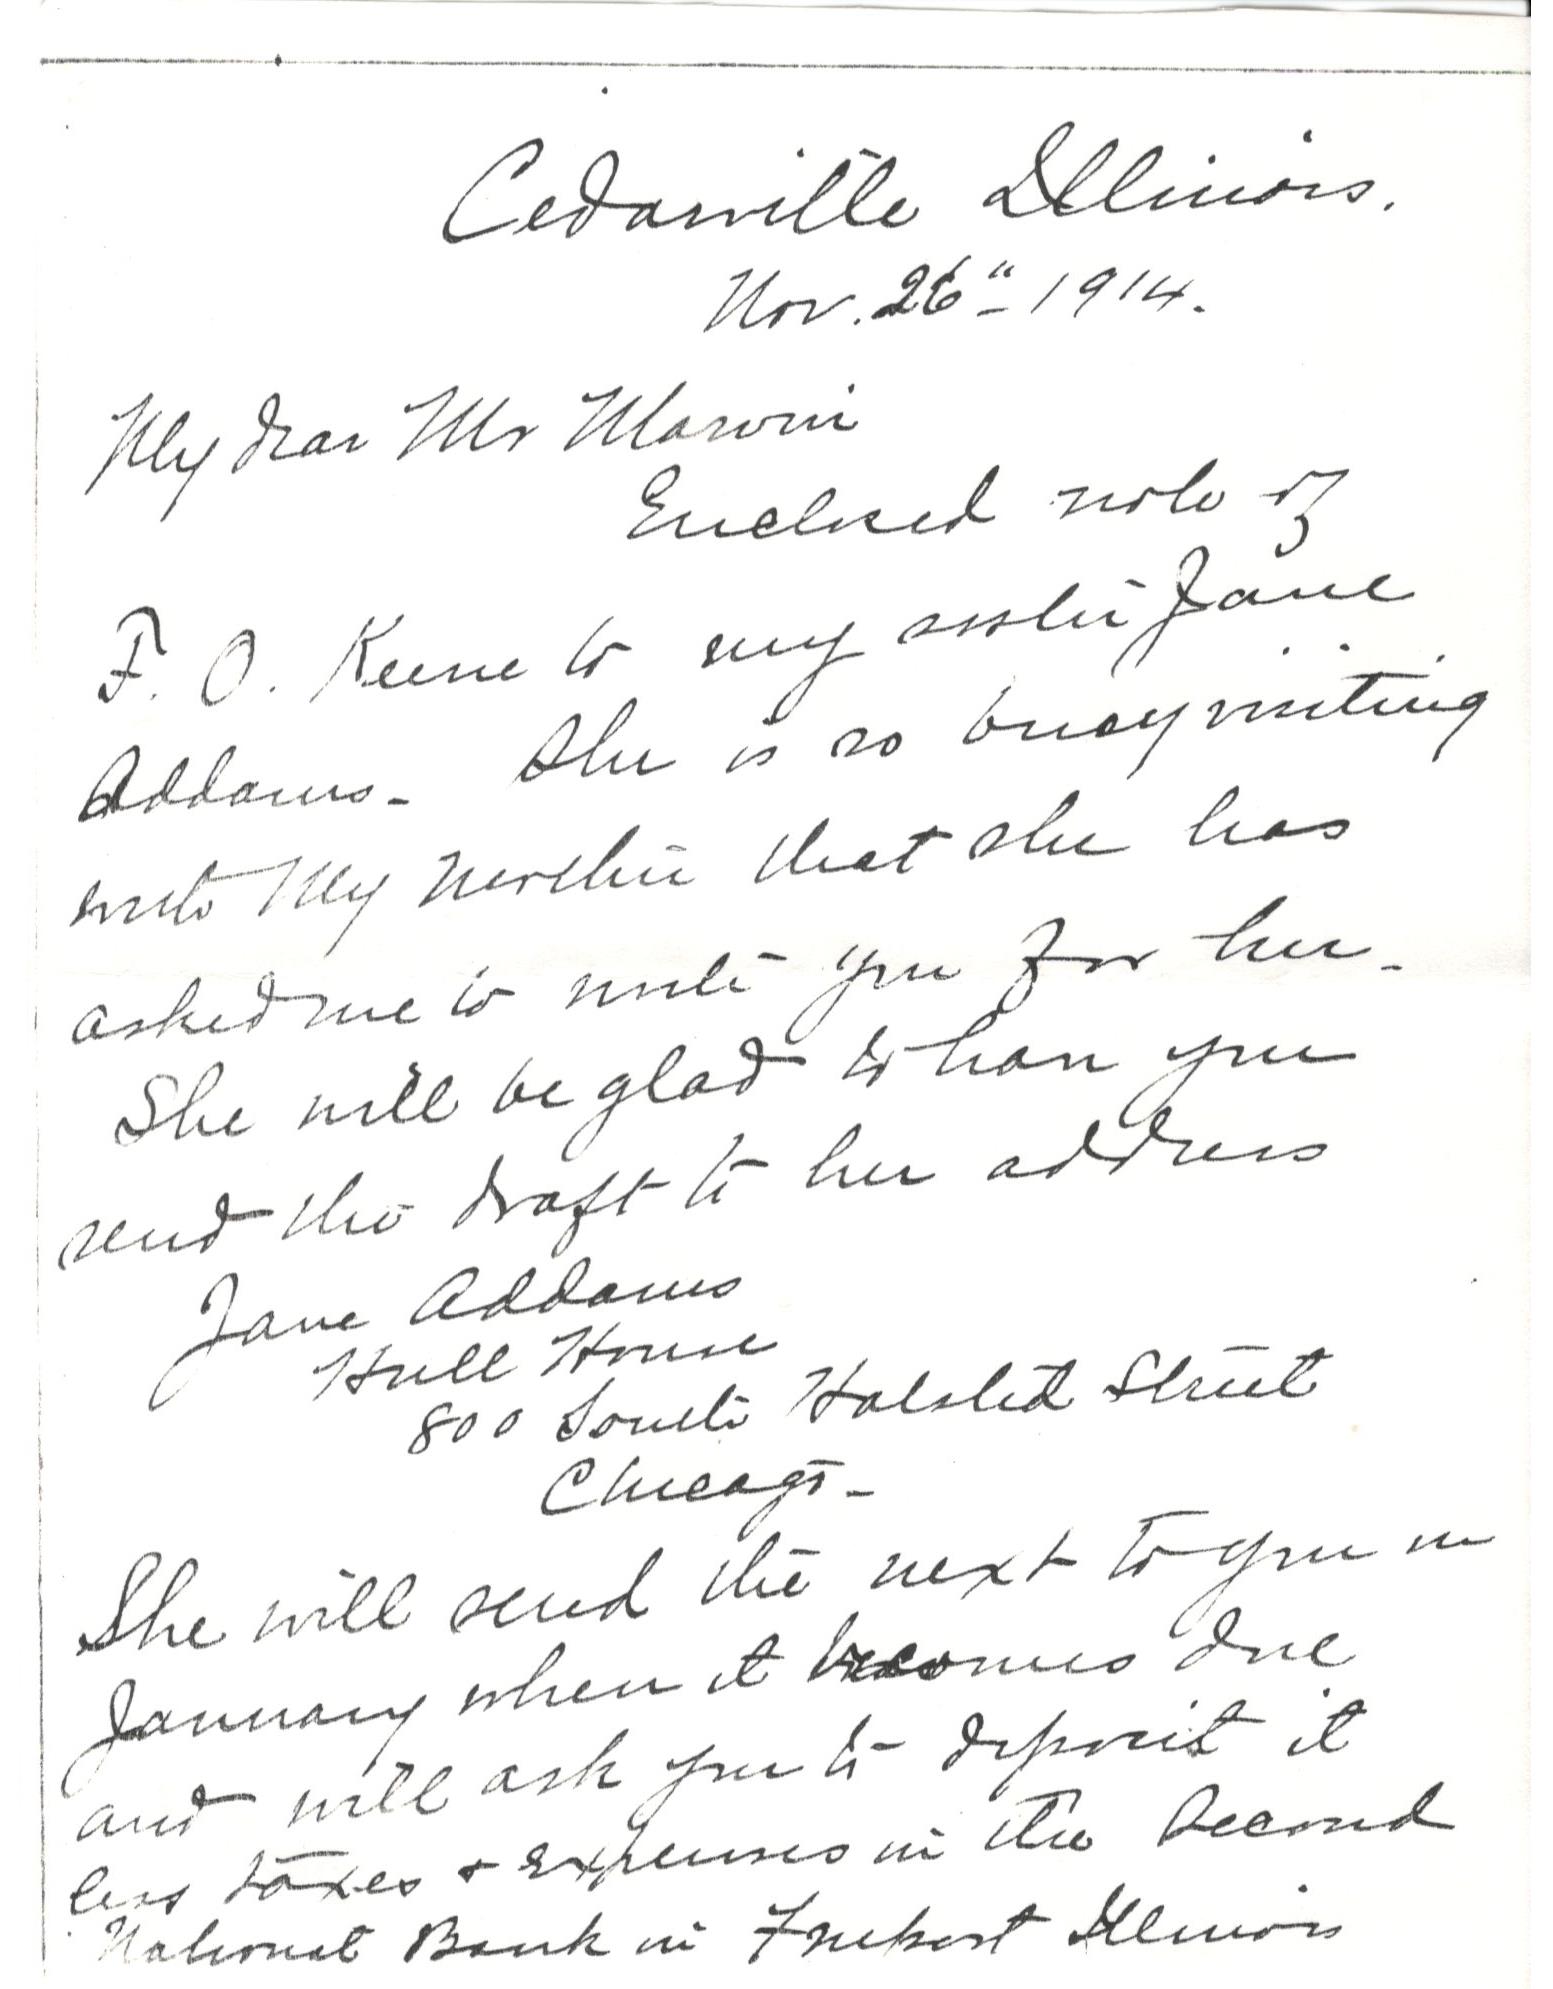 Cedarville Illinois.
Nov. 26" 1914.
My dear Mr Marvin
Enclosed note of
F. O. Keene to my sister Jane
Addams - She is so busy visiting
with My Mother that she has
asked me to write you for her -
She will be glad to have you
send the draft to her address
Jane Addams
Hull House
800 South Halsted Street
Chicago -
She will send the next to you in
January when it becomes due
and will ask you to deposit it
less taxes & expenses in the Second
National Bank in Freeport Illinois